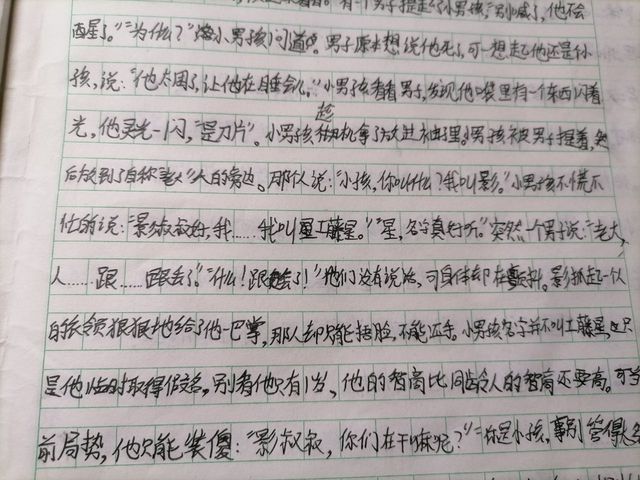 有一个男子提起了小男孩，"别喊了，他不会
西星了。""为什么？"小男孩问道。男子原本想说他死了，可一想起他还是小
孩，说："他太困了，让他在睡会儿。"小男孩看着男子，发现他口袋里有一个东西闪着
光，他灵光一闪，"是刀片"。小男孩趁机拿了放进袖子里。小男孩被男子提着，然
后放到了自称老大人的旁边。那人说："小孩，你叫什么？我叫影。"小男孩不慌不
忙的说："影叔叔好，我……我叫工藤星。""星，名字真好听。"突然一个男子说："老大，
人……跟……跟丢了。""什么！跟丢了！"他们没有说话，可身体却在颤抖。影抓起一人
的衣领狠狠地给了他一巴掌，那人却只能捂脸，不能还手。小男孩名字并不叫工藤星，这只
是他临时取得假名。别看他只有1岁，他的智商比同龄人的智商还要高。可
前局势，他只能装傻："影叔叔，你们在干嘛呢？""你是小孩，事别管得